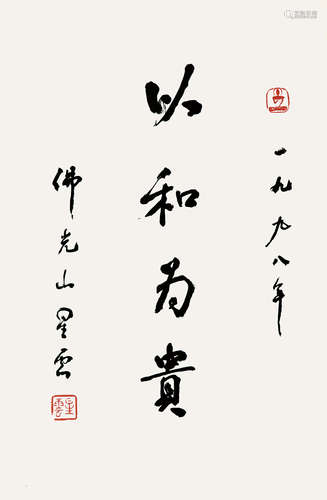 一九九八年
以和为貴
佛光山星雲
星雲